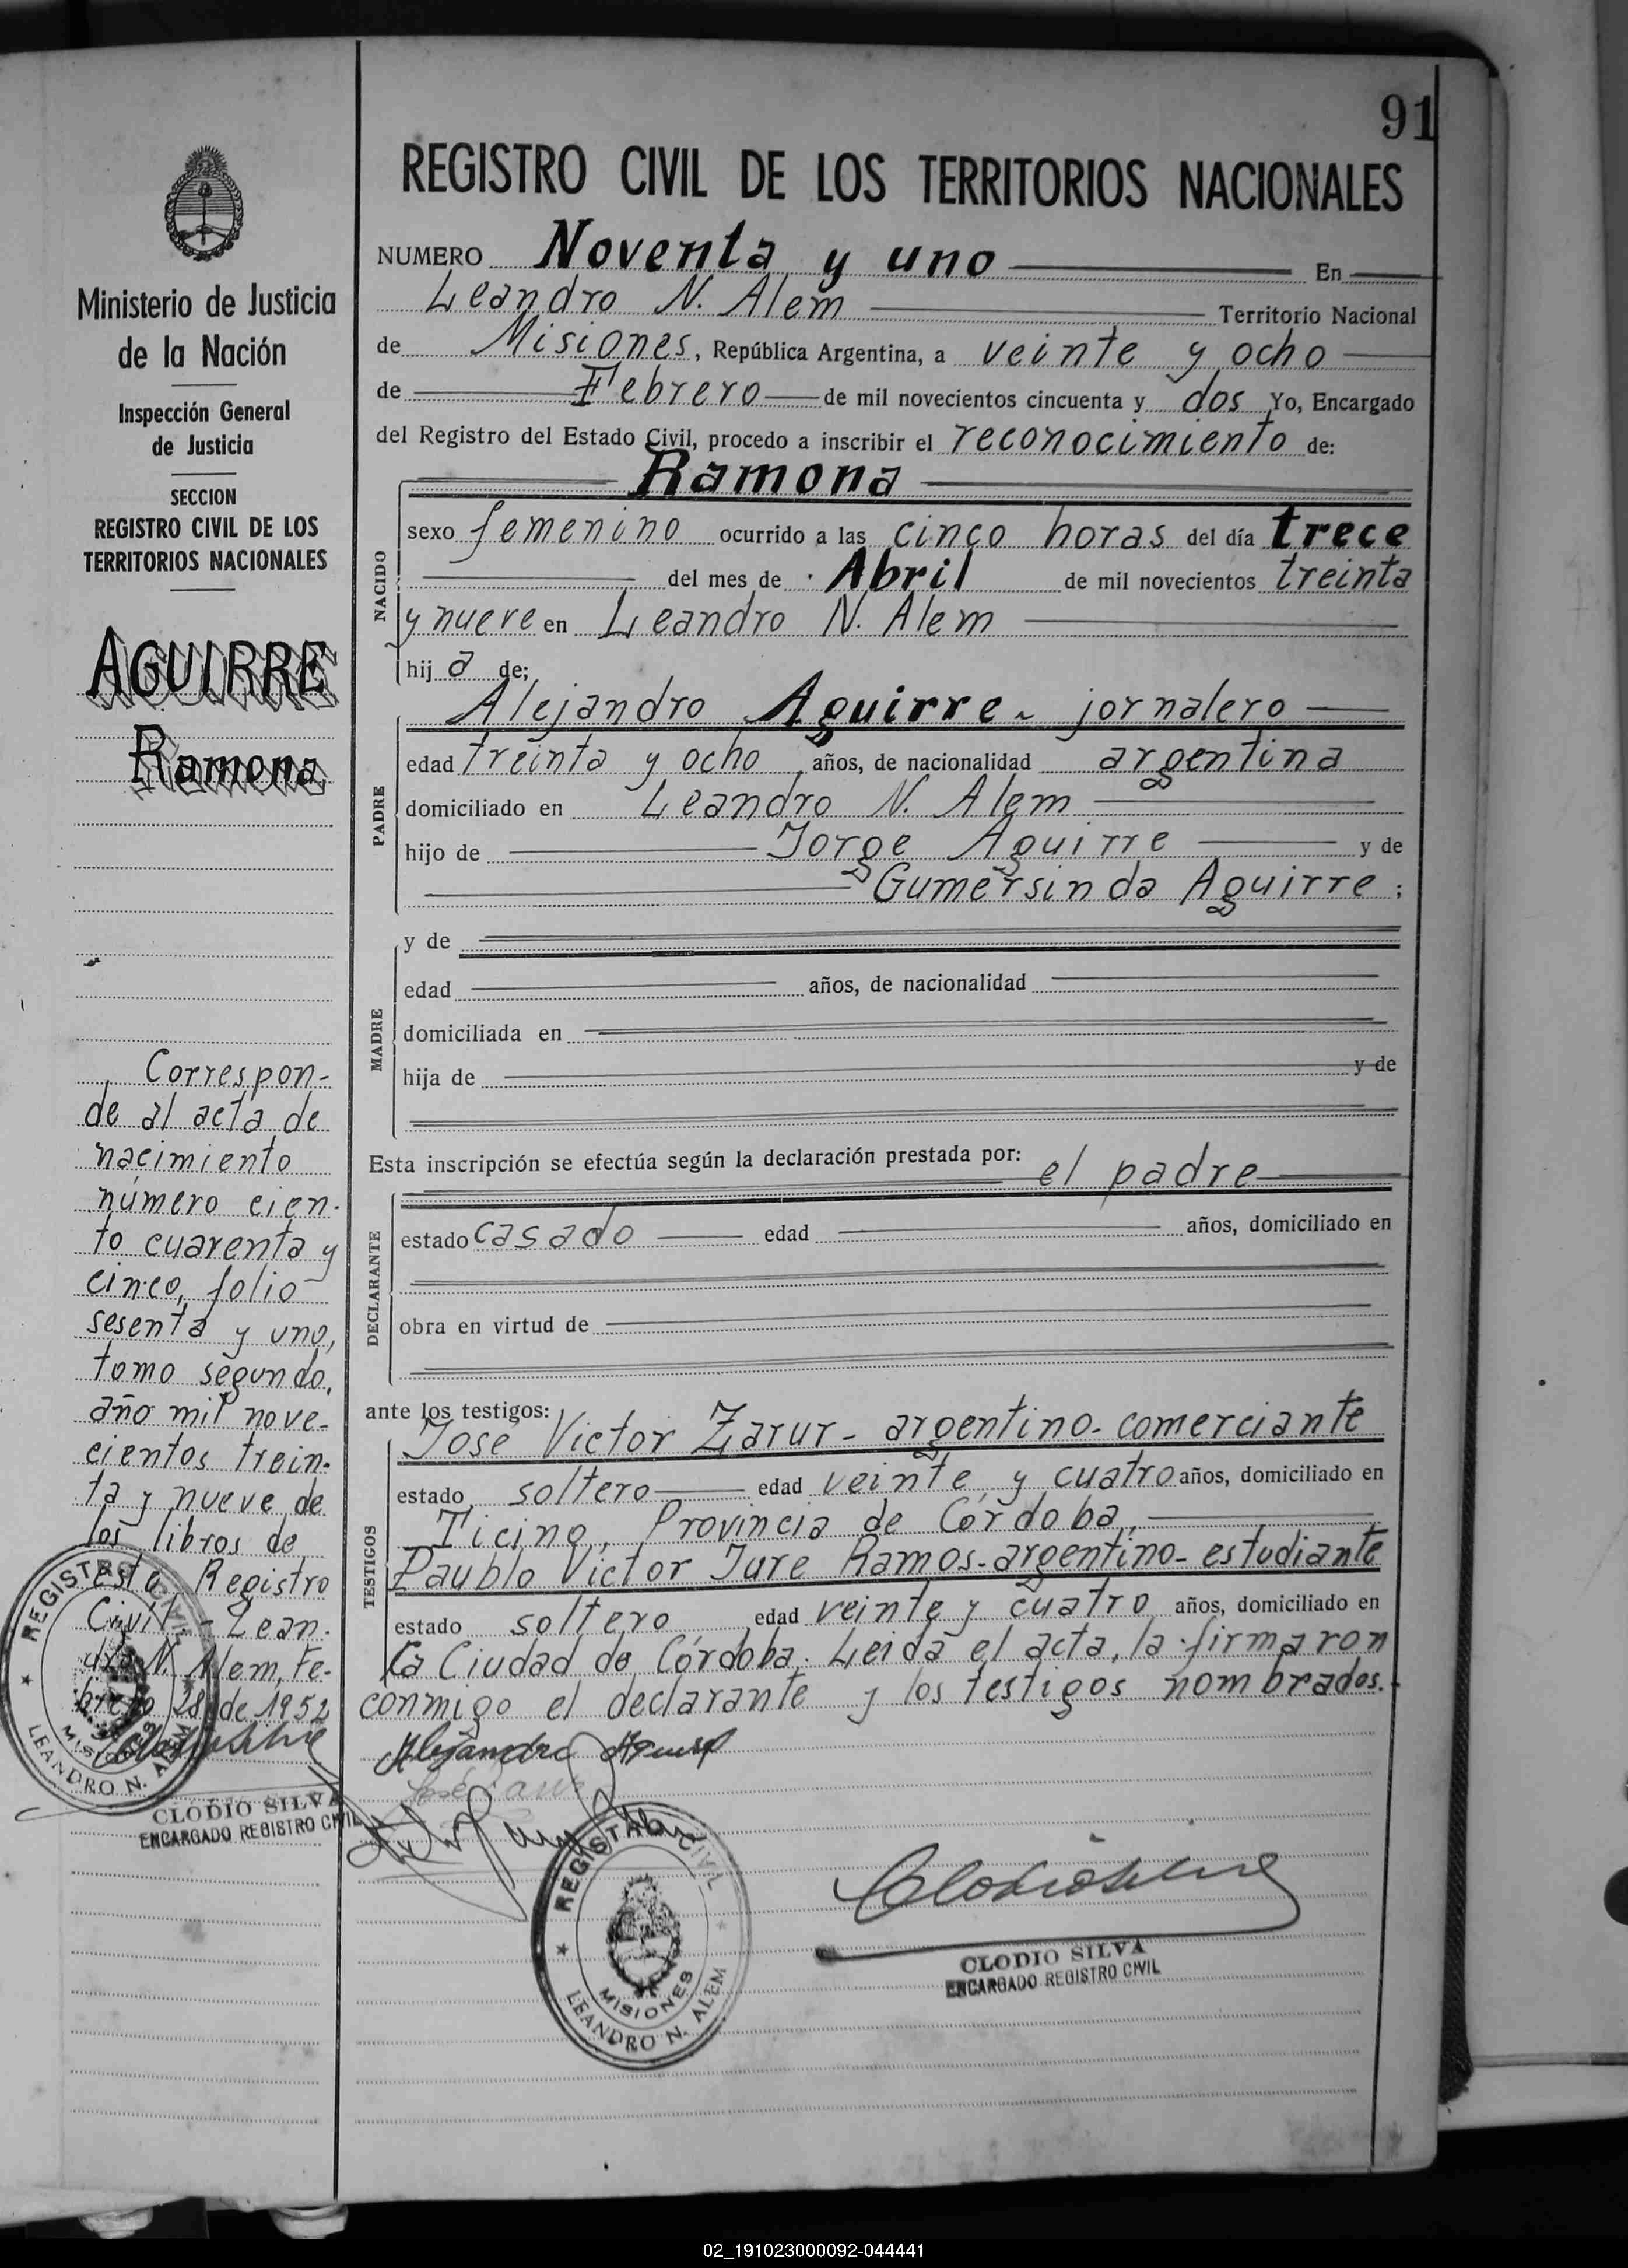 91
REGISTRO CIVIL DE LOS TERRITORIOS NACIONALES
Ministerio de Justicia
de la Nación
Inspección General
de Justicia
SECCION
REGISTRO CIVIL DE LOS
TERRITORIOS NACIONALES
AGUIRRE
Ramona
Correspon-
de al acta de
nacimiento
número cien-
to cuarenta y
cinco, folio
sesenta y uno,
tomo segundo,
año mil nove-
cientos trein-
ta y nueve de
los libros de
este Registro
Civil - Lean-
dro N. Alem, Fe-
brero 28 de 1952
REGISTRO CIVIL
MISIONES
LEANDRO N. ALEM
CLODIO SILVA
ENCARGADO REGISTRO CIVIL
NUMERO Noventa y uno En
Leandro N. Alem Territorio Nacional
de Misiones, República Argentina, a veinte y ocho
de Febrero de mil novecientos cincuenta y dos Yo, Encargado
del Registro del Estado Civil, procedo a inscribir el reconocimiento de:
Ramona
NACIDO
sexo femenino ocurrido a las cinco horas del día trece
del mes de Abril de mil novecientos treinta
y nueve en Leandro N. Alem
hija de;
Alejandro Aguirre - jornalero
PADRE
edad treinta y ocho años, de nacionalidad argentina
domiciliado en Leandro N. Alem
hijo de Jorge Aguirre y de
Gumersinda Aguirre;
MADRE
y de
edad años, de nacionalidad
domiciliada en
hija de y de
Esta inscripción se efectúa según la declaración prestada por: el padre
DECLARANTE
estado casado edad años, domiciliado en
obra en virtud de
ante los testigos:
TESTIGOS
Jose Victor Zarur - argentino - comerciante
estado soltero edad veinte y cuatro años, domiciliado en
Ticino, Provincia de Córdoba,
Paublo Victor Jure Ramos - argentino - estudiante
estado soltero edad veinte y cuatro años, domiciliado en
la Ciudad de Córdoba. Leida el acta, la firmaron
conmigo el declarante y los testigos nombrados.
Alejandro Aguirre
REGISTRO CIVIL
MISIONES
LEANDRO N. ALEM
Clodio Silva
CLODIO SILVA
ENCARGADO REGISTRO CIVIL
02_191023000092-044441